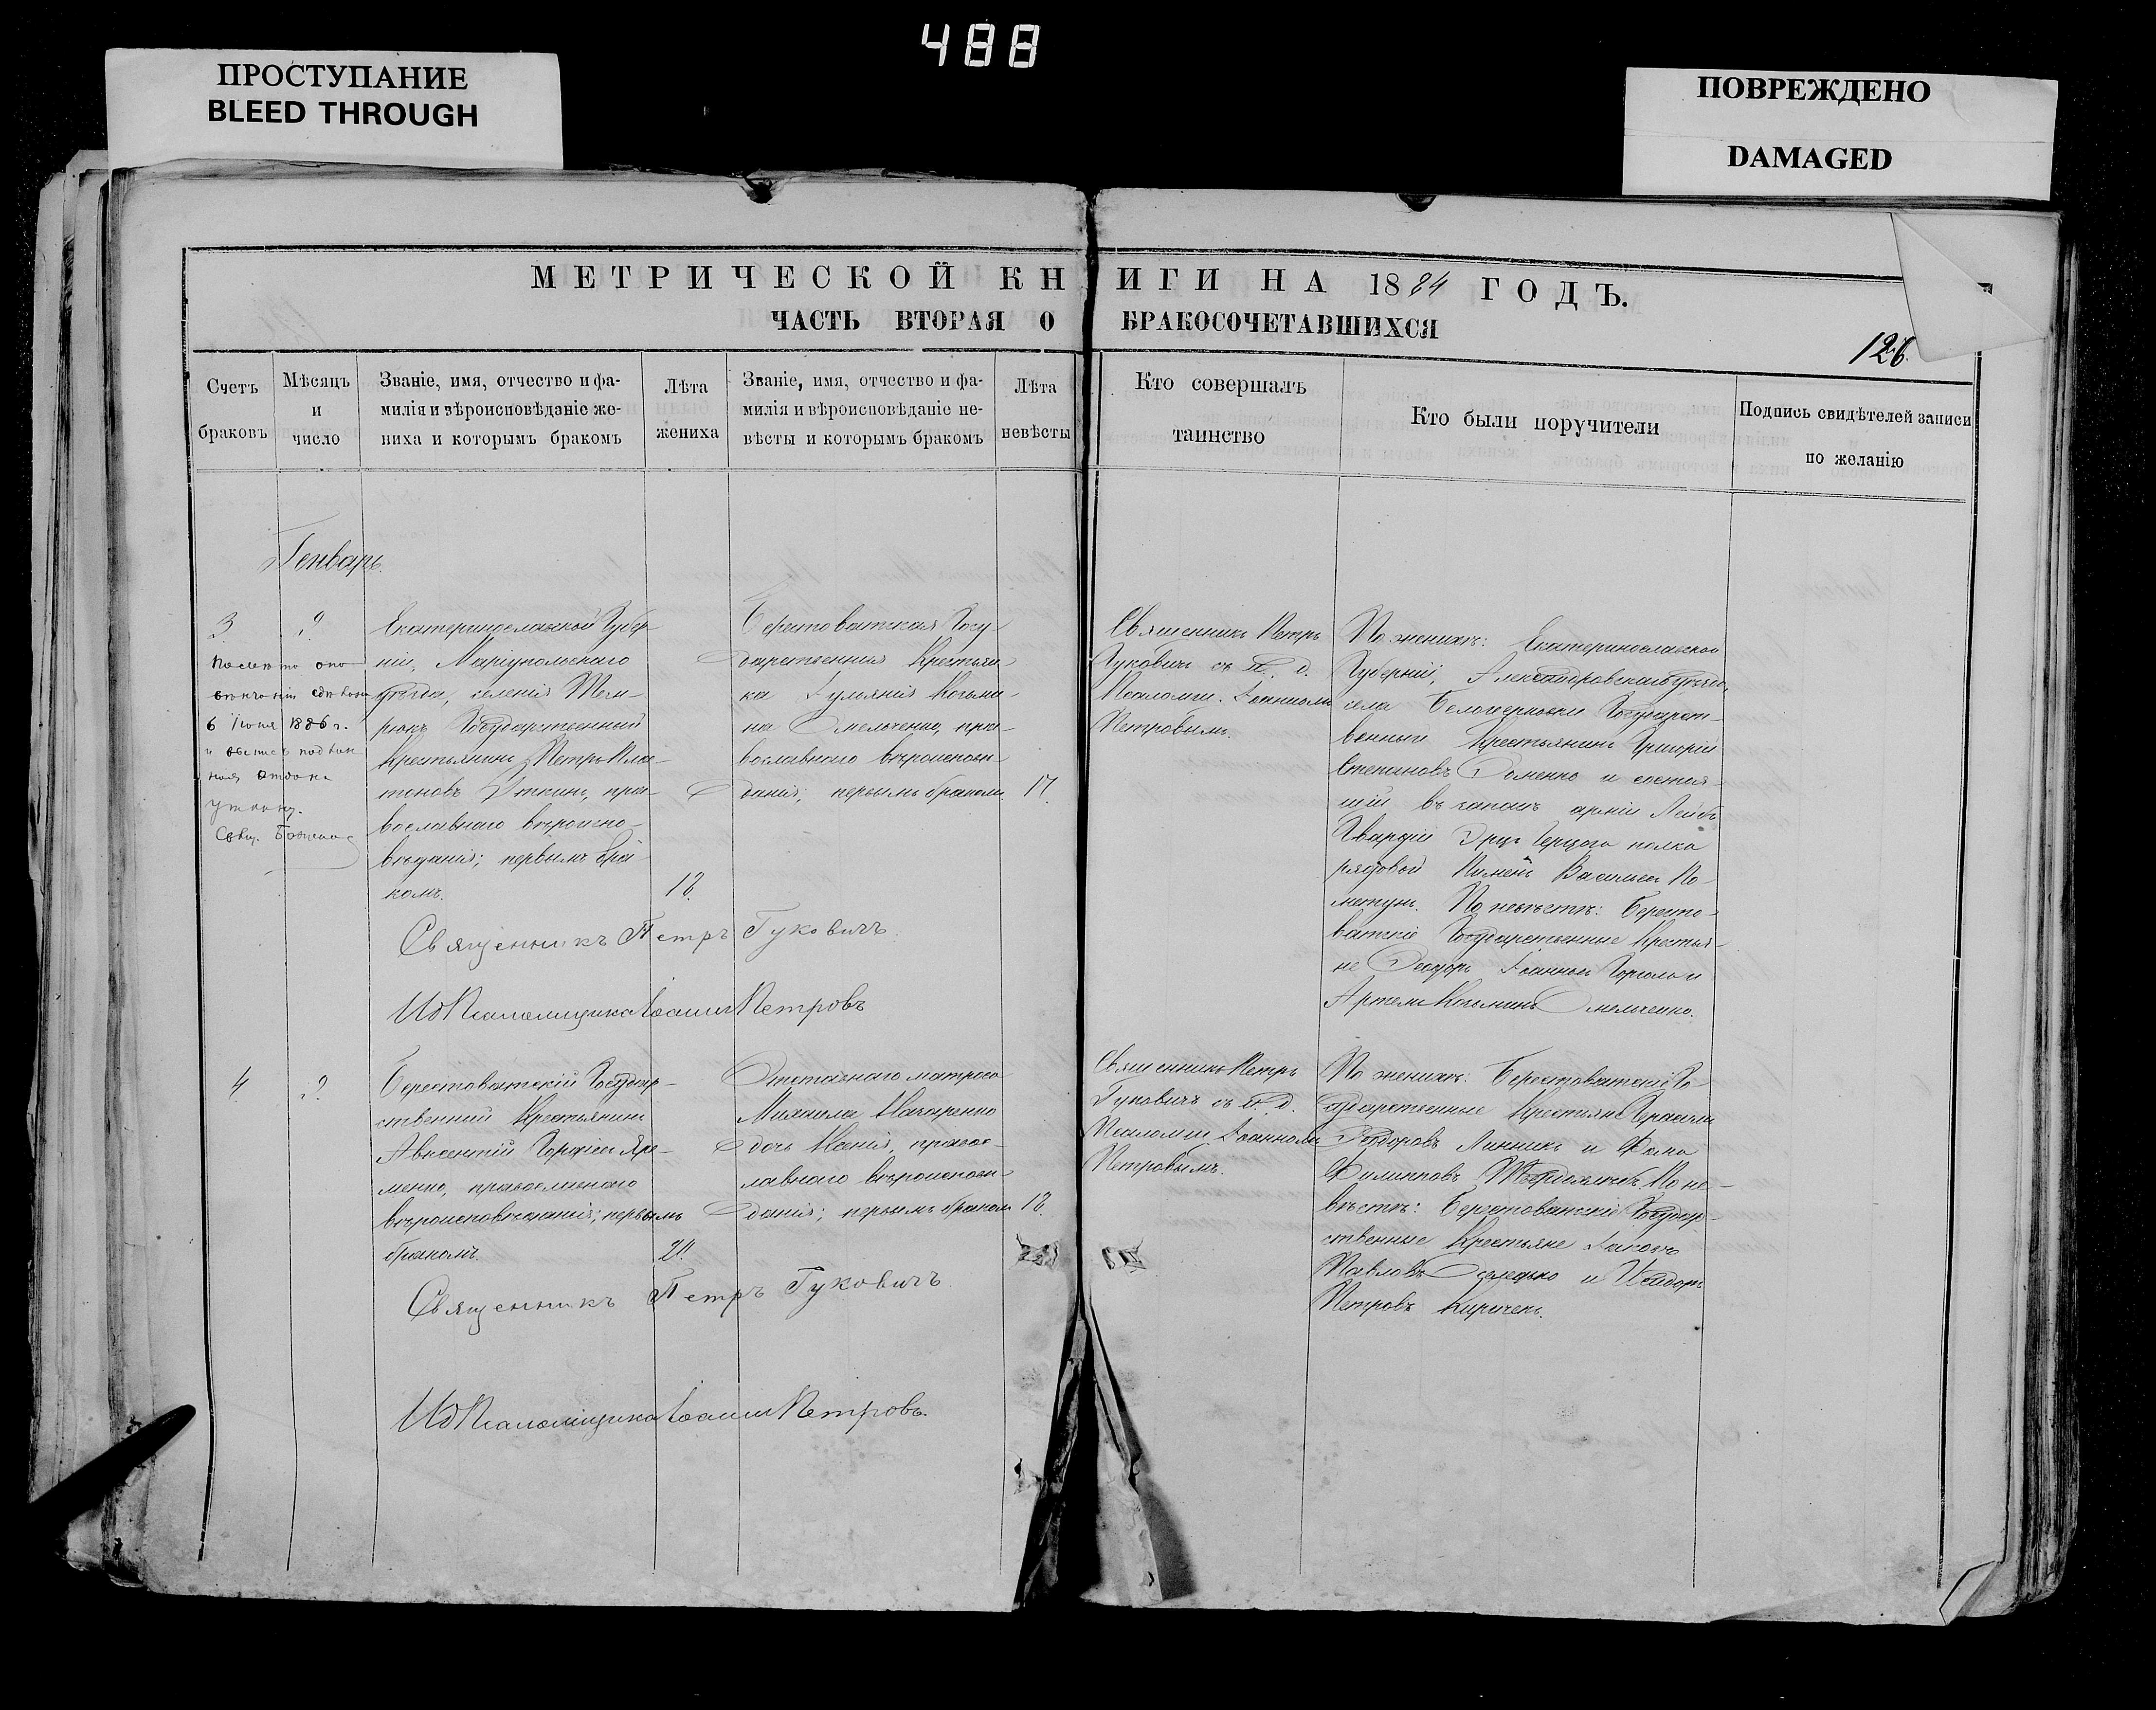 488
ПРОСТУПАНИЕ
BLEED THROUGH
ПОВРЕЖДЕНО
DAMAGED
МЕТРИЧЕСКОЙ КНИГИ НА 1884 ГОДЪ.
ЧАСТЬ ВТОРАЯ О БРАКОСОЧЕТАВШИХСЯ
126.
Счетъ
браковъ
Мѣсяцъ
и
число
Званіе, имя, отчество и фа-
милія и вѣроисповѣданіе же-
ниха и которымъ бракомъ
Лѣта
жениха
Званіе, имя, отчество и фа-
милія и вѣроисповѣданіе не-
вѣсты и которымъ бракомъ
Лѣта
невѣсты
Кто совершалъ
таинство
Кто были поручители
Подпись свидѣтелей записи
по желанію
Генварь.
3.
6 Іюня 1886 г.
Екатеринославской Губер-
ніи, Маріупольскаго
уѣзда, селенія Тем-
рюкъ Государственный
Крестьянинъ Петръ Пла-
тоновъ пра-
вославнаго вѣроиспо-
вѣданія; первымъ бра-
комъ.
18.
Берестоватская Госу-
дарственная Крестьян-
ка Іуліянія Козьми-
на Омельченко, пра-
вославнаго вѣроисповѣ-
данія; первымъ бракомъ.
17.
Священникъ Петръ
Гуковичъ съ и. д.
Псаломщ. Іоанномъ
Петровымъ.
По женихѣ: Екатеринославской
Губерніи, Александровскаго уѣзда,
села Государст-
венный Крестьянинъ Григорій
Степановъ и состоя-
щій въ запасѣ арміи Лейбъ
Гвардіи полка
рядовой Пименъ Васильевъ
По невѣстѣ: Бересто-
ватскіе Государственные Крестья-
не Ѳеодоръ Іоанновъ и
Козьминъ Омельченко.
Священникъ Петръ Гуковичъ.
ИД Псаломщика Іоаннъ Петровъ
4.
Берестоватскій Государ-
ственный Крестьянинъ
Авксентій Яре-
менко, православнаго
вѣроисповѣданія; первымъ
бракомъ.
Отставнаго матроса
Михаила Назаренко
дочь Ксенія, правос-
лавнаго вѣроисповѣ-
данія; первымъ бракомъ
18.
Священникъ Петръ
Гуковичъ съ и. д.
Псаломщ. Іоанномъ
Петровымъ.
По женихѣ: Берестоватскіе Го-
сударственные Крестьяне Герасимъ
Ѳеодоровъ Линникъ и Ѳома
Филипповъ По не-
вѣстѣ: Берестоватскіе Государ-
ственные Крестьяне Іаковъ
Павловъ Оселедько и Исидоръ
Петровъ
Священникъ Петръ Гуковичъ.
ИД Псаломщика Іоаннъ Петровъ.